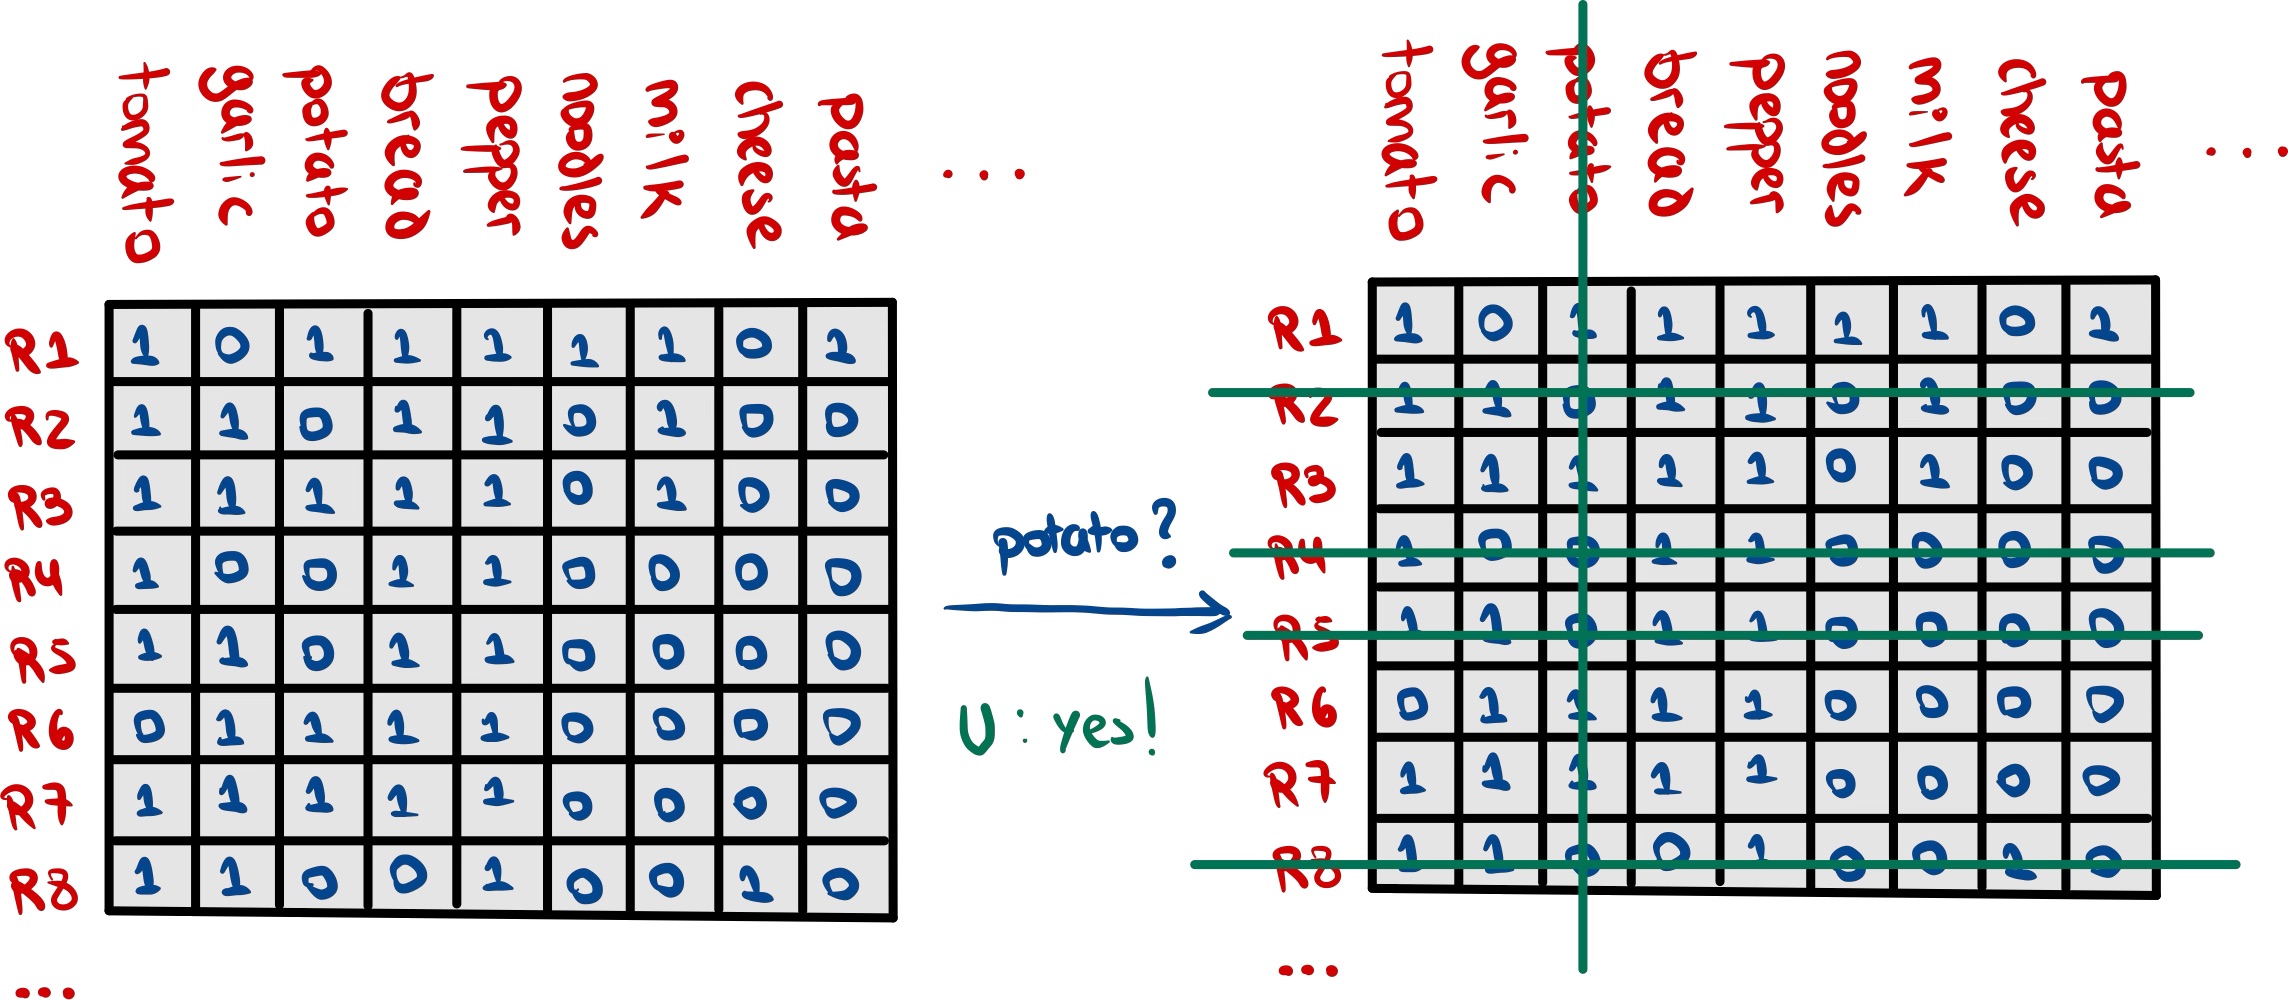 tomato garlic potato bread pepper noodles milk cheese pasta ...
R1 1 0 1 1 1 1 1 0 1
R2 1 1 0 1 1 0 1 0 0
R3 1 1 1 1 1 0 1 0 0
R4 1 0 0 1 1 0 0 0 0
R5 1 1 0 1 1 0 0 0 0
R6 0 1 1 1 1 0 0 0 0
R7 1 1 1 1 1 0 0 0 0
R8 1 1 0 0 1 0 0 1 0
...
potato?
U: yes!
tomato garlic potato bread pepper noodles milk cheese pasta ...
R1 1 0 1 1 1 1 1 0 1
R2 1 1 0 1 1 0 1 0 0
R3 1 1 1 1 1 0 1 0 0
R4 1 0 0 1 1 0 0 0 0
R5 1 1 0 1 1 0 0 0 0
R6 0 1 1 1 1 0 0 0 0
R7 1 1 1 1 1 0 0 0 0
R8 1 1 0 0 1 0 0 1 0
...